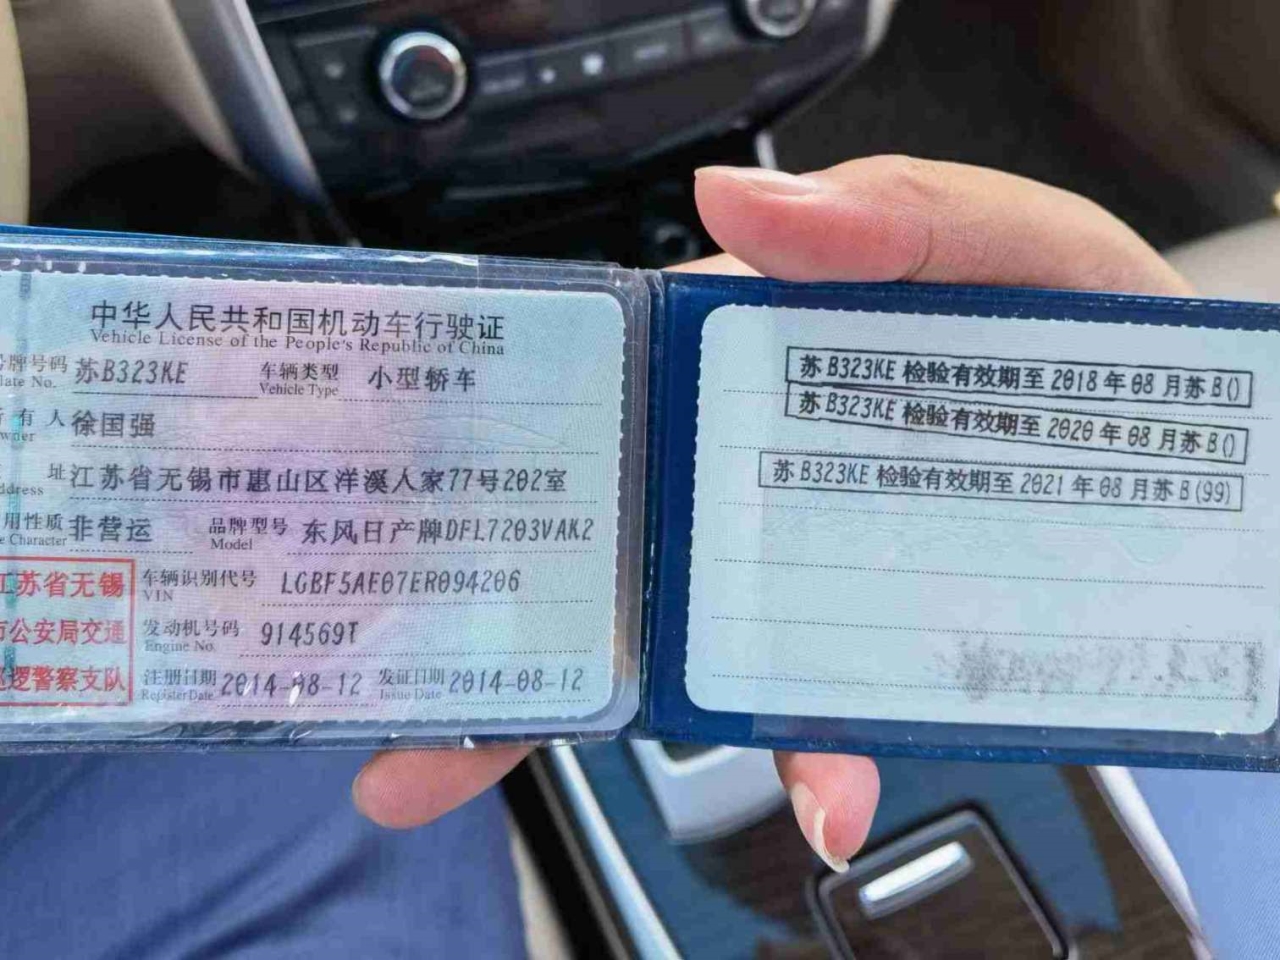 中华人民共和国机动车行驶证
Vehicle License of the People's Republic of China
牌号码 苏B323KE 车辆类型 小型轿车
late No. Vehicle Type
有 人 徐国强
wner
址 江苏省无锡市惠山区洋溪人家77号202室
ddress
用性质 非营运 品牌型号 东风日产牌DFL7203VAK2
e Character Model
江苏省无锡 车辆识别代号 LGBF5AE07ER094206
VIN
市公安局交通 发动机号码 914569T
Engine No.
巡逻警察支队 注册日期 2014-08-12 发证日期 2014-08-12
Register Date Issue Date
苏B323KE 检验有效期至2018年08月苏B()
苏B323KE 检验有效期至2020年08月苏B()
苏B323KE 检验有效期至2021年08月苏B(99)